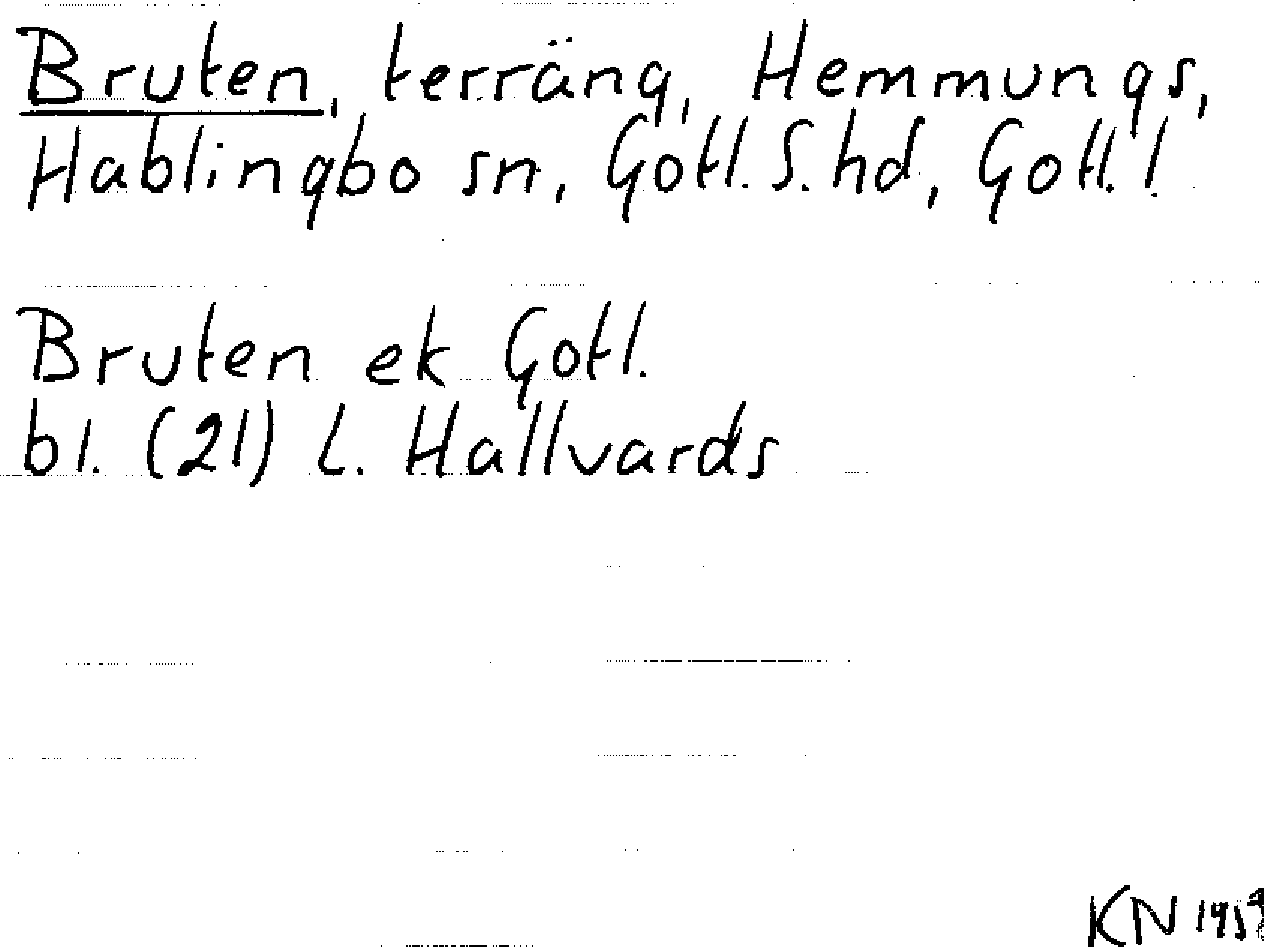 Bruten, terräng, Hemmungs,
Hablingbo sn, Gotl. S. hd, Gotl. l.
Bruten ek Gotl.
bl. (21) L. Hallvards
KN 1959